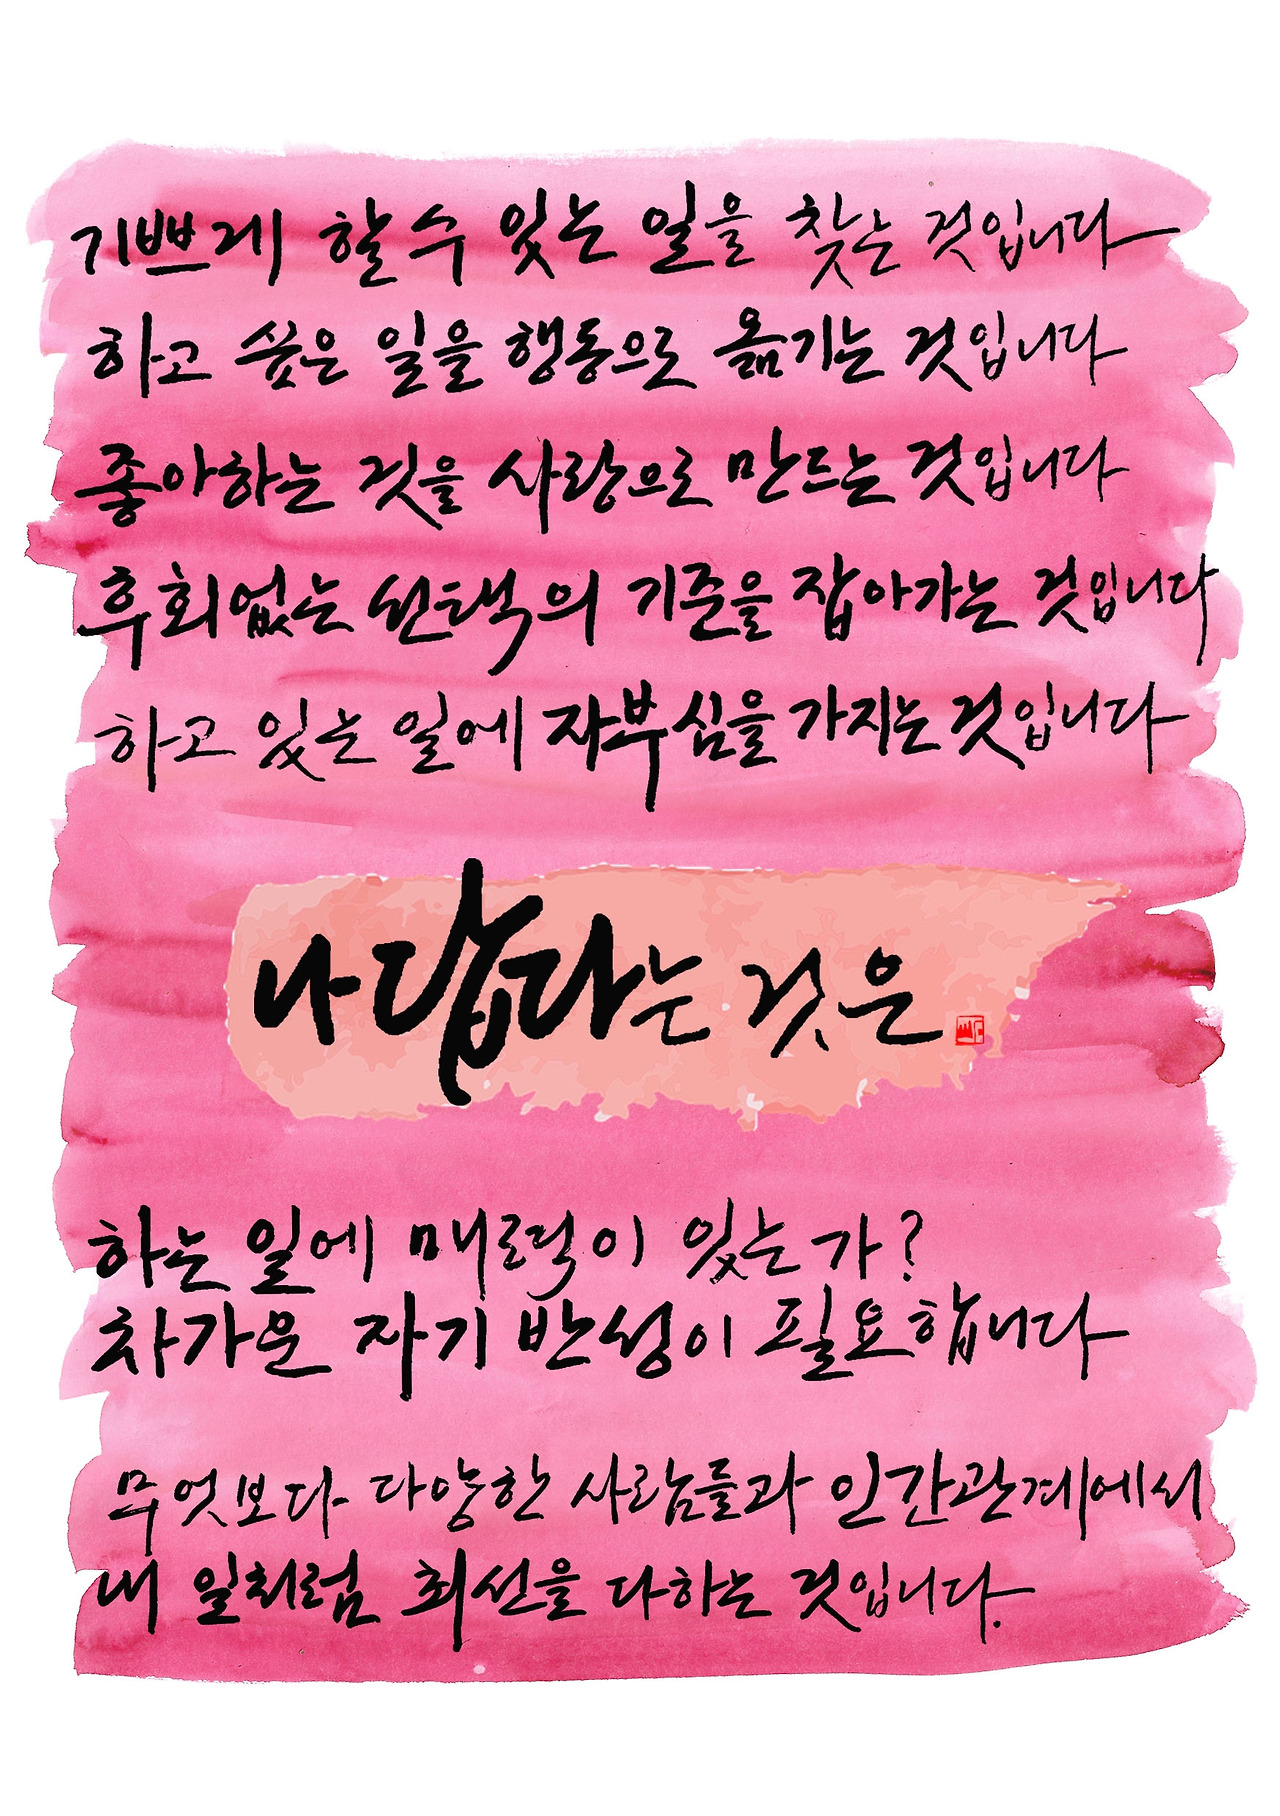 기쁘게 할 수 있는 일을 찾는 것입니다
하고 싶은 일을 행동으로 옮기는 것입니다
좋아하는 것을 사랑으로 만드는 것입니다
후회없는 선택의 기준을 잡아가는 것입니다
하고 있는 일에 자부심을 가지는 것입니다
나답다는 것은
하는 일에 매력이 있는가?
차가운 자기 반성이 필요합니다
무엇보다 다양한 사람들과 인간관계에서
내 일처럼 최선을 다하는 것입니다.